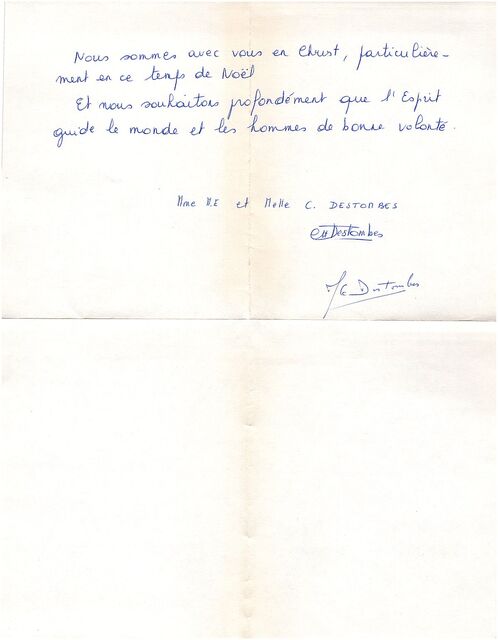 Nous sommes avec vous en Christ, particulière-
ment en ce temps de Noël
Et nous souhaitons profondément que l'Esprit
guide le monde et les hommes de bonne volonté.
Mme M.E et Melle C. DESTOMBES
Destombes
Destombes